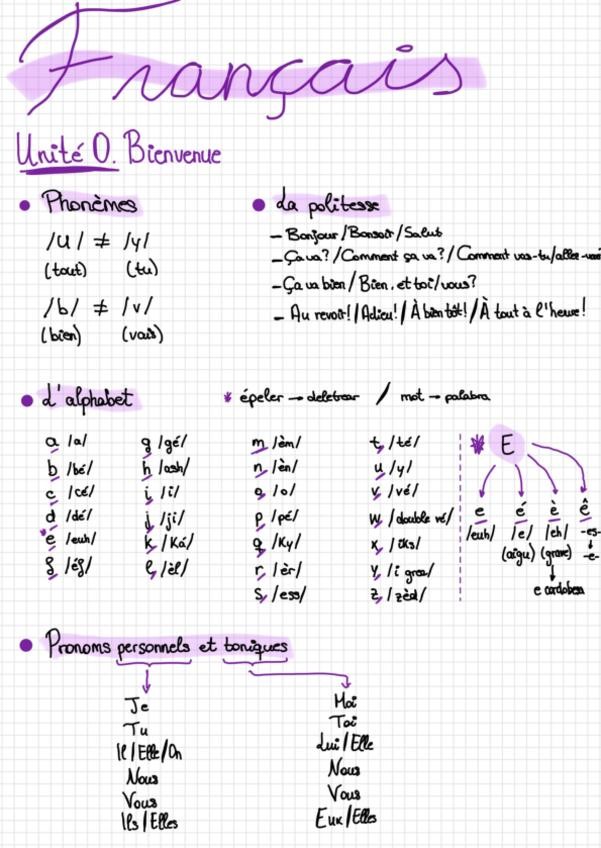 Français
Unité 0. Bienvenue
Phonèmes
/u/ ≠ /y/
(tout) (tu)
/b/ ≠ /v/
(bien) (vais)
La politesse
- Bonjour/Bonsoir/Salut
- Ça va?/Comment ça va?/Comment vas-tu/allez-vous
- Ça va bien/Bien, et toi/vous?
- Au revoir!/Adieu!/À bientôt!/À tout à l'heure!
L'alphabet
* épeler → deletrear / mot → palabra
a /a/
b /bé/
c /cé/
d /dé/
*e /euh/
f /éf/
g /gé/
h /ash/
i /i/
j /ji/
k /Ká/
l /èl/
m /èm/
n /èn/
o /o/
p /pé/
q /Ky/
r /èr/
s /ess/
t /té/
u /y/
v /vé/
w /double vé/
x /iks/
y /i grec/
z /zèd/
* E
e é è ê
/euh/ /e/ /eh/ -es-
(aigu) (grave) -e-
e cordobesa
Pronoms personnels et toniques
Je
Tu
Il/Elle/On
Nous
Vous
Ils/Elles
Moi
Toi
Lui/Elle
Nous
Vous
Eux/Elles